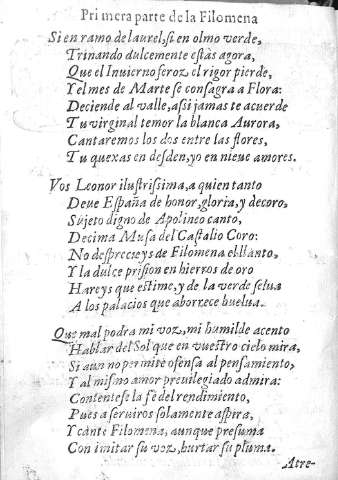 Primera parte de la Filomena
Si en ramo de laurel, si en olmo verde,
Trinando dulcemente estàs agora,
Que el Inuierno feroz el rigor pierde,
Y el mes de Marte se consagra a Flora:
Deciende al valle, assi jamas te acuerde
Tu virginal temor la blanca Aurora,
Cantaremos los dos entre las flores,
Tu quexas en desden, yo en nieue amores.
Vos Leonor ilustrissima, a quien tanto
Deue España de honor, gloria, y decoro,
Sujeto digno de Apolineo canto,
Decima Musa del Castalio Coro:
No desprecieys de Filomena el llanto,
Y la dulce prision en hierros de oro
Hareys que estime, y de la verde selua
A los palacios que aborrece buelua.
Que mal podra mi voz, mi humilde acento
Hablar del Sol que en vuestro cielo mira,
Si aun no permite ofensa al pensamiento,
Y al mismo amor preuilegiado admira:
Contentese la fè del rendimiento,
Pues a seruiros solamente aspira,
Y cante Filomena, aunque presuma
Con imitar su voz, hurtar su pluma.
Atre-